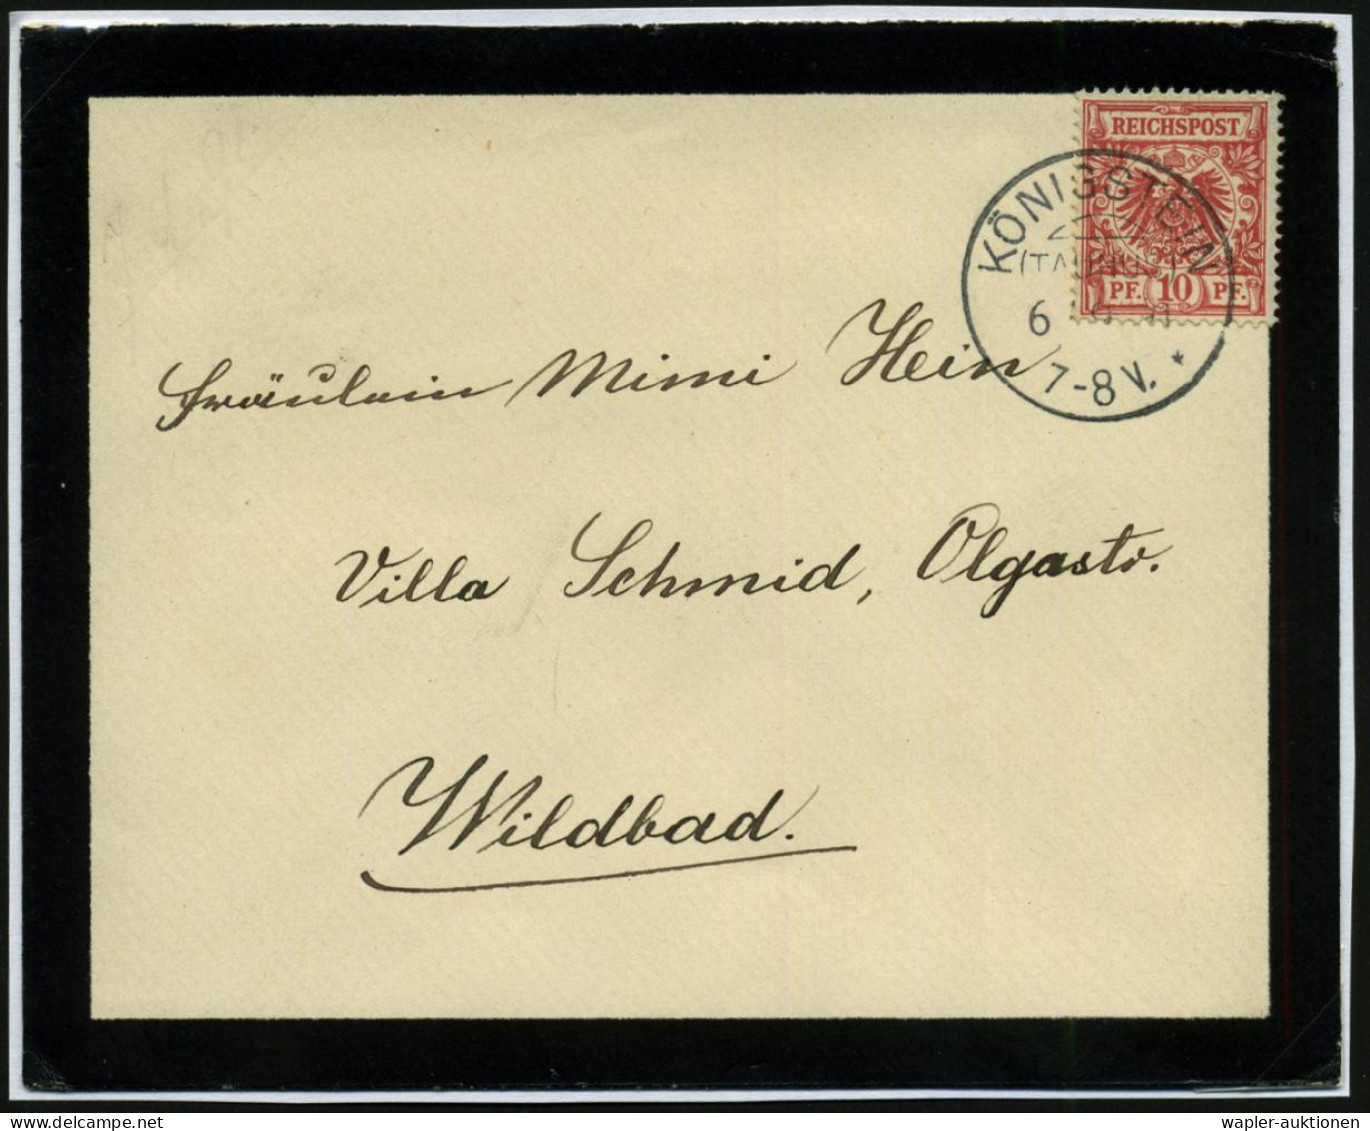 REICHSPOST
PF. 10 PF.
KÖNIGSTEIN
(TAUNUS)
6
7-8 V. *
Fräulein Mimi Hein
Villa Schmid, Olgastr.
Wildbad.
wapler-auktionen